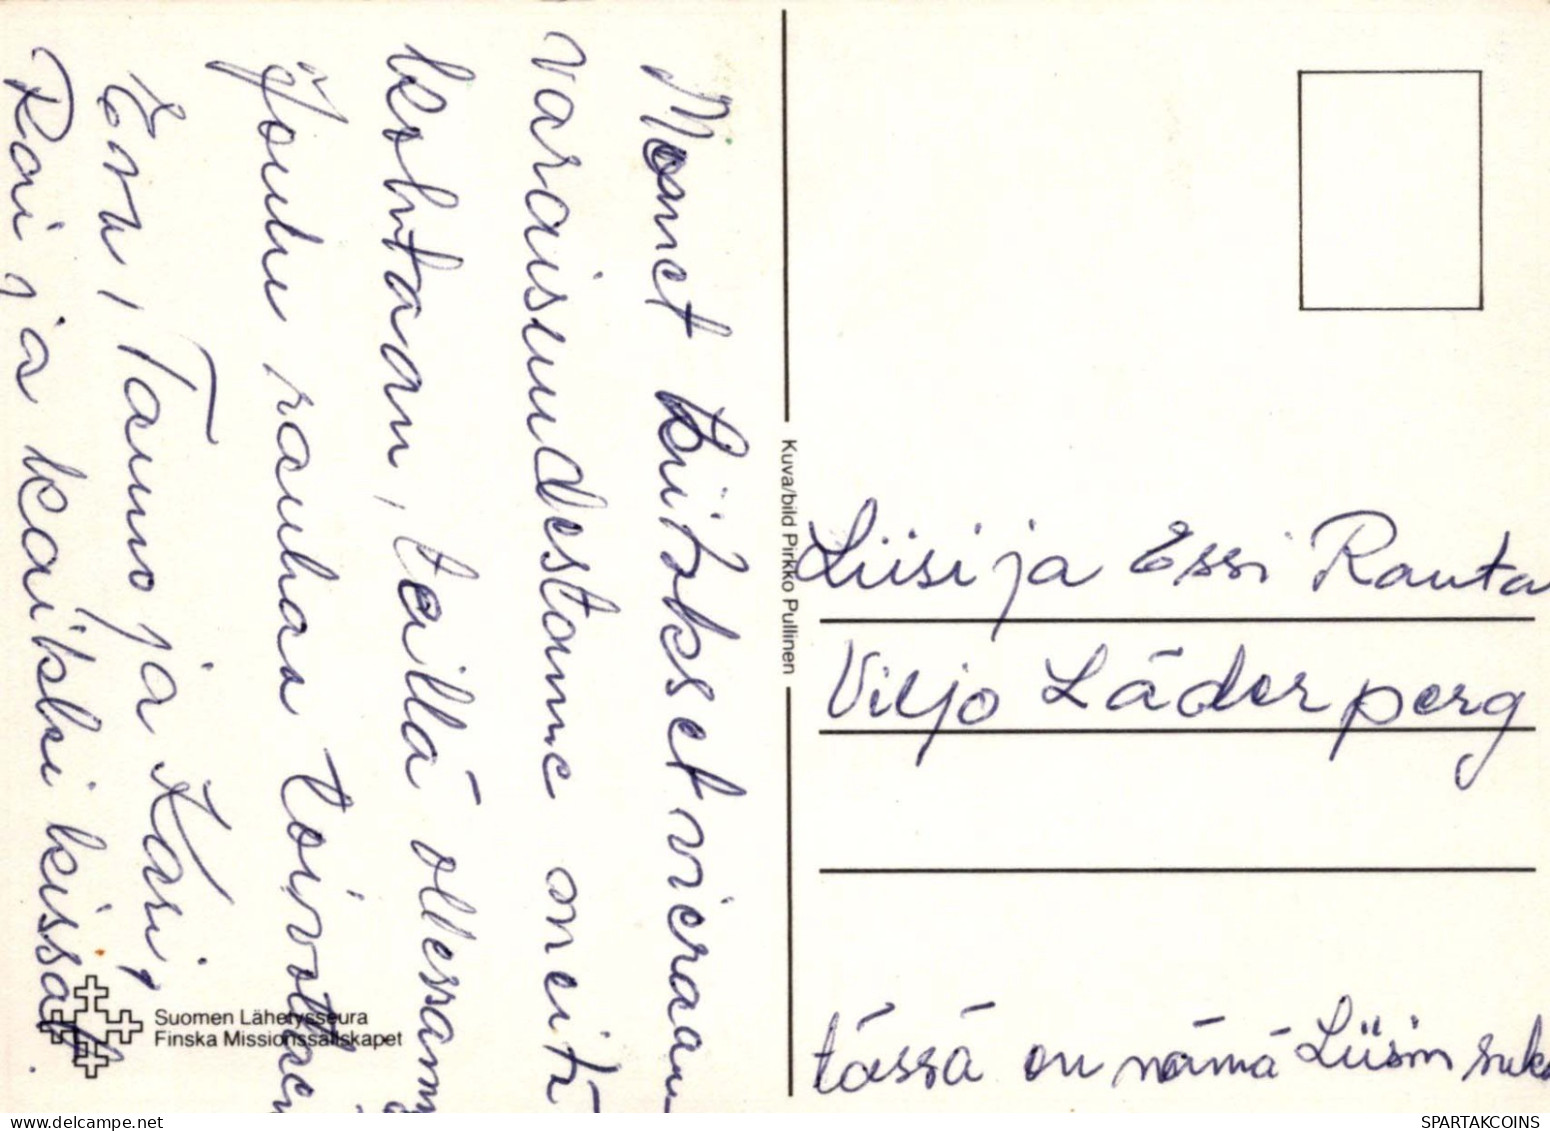 Monet kiitokset vieraan
varaisuudestanne meitä
kohtaan, teillä ollessamme
Joulu rauhaa Toivottaen
Eva, Tauno ja Kari,
Rai ja kaikki kissat.
Kuva/bild Pirkko Pullinen
Liisi ja Essi Rauta
Viljo Läderperg
tässä on nämä Liisin
Suomen Lähetysseura
Finska Missionssällskapet
SPARTAKCOINS